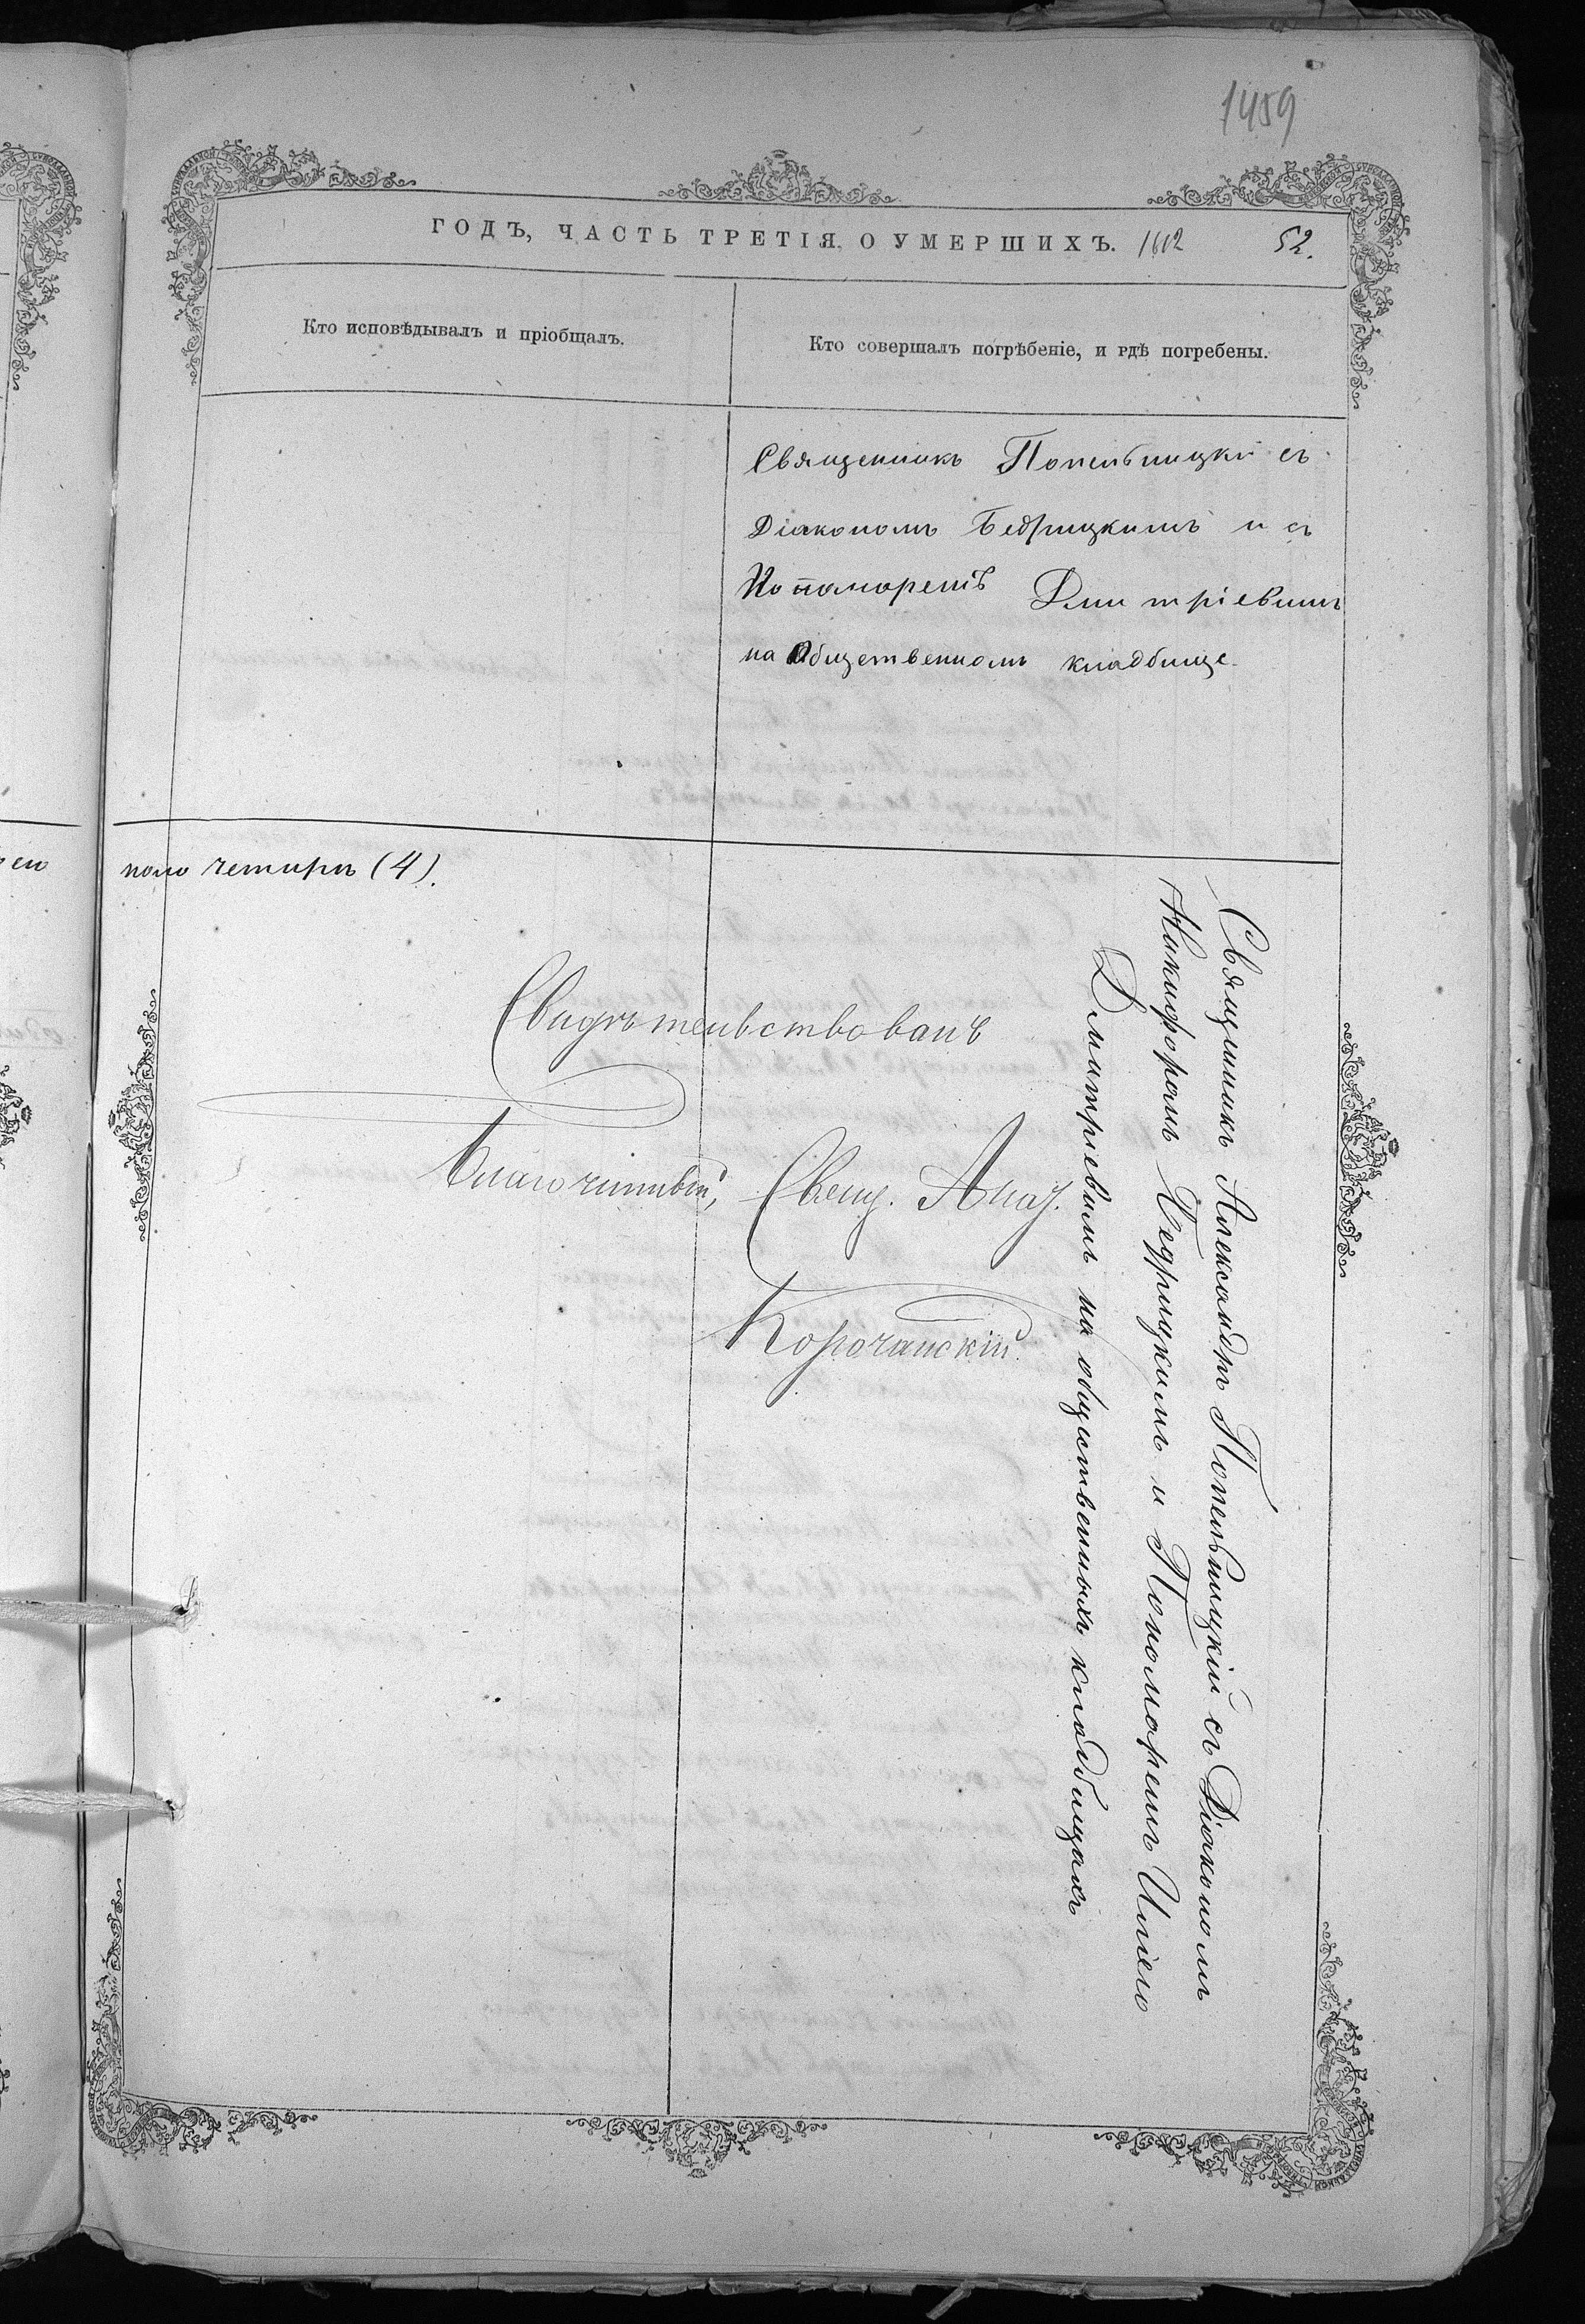 1459
ГОДЪ, ЧАСТЬ ТРЕТІЯ О УМЕРШИХЪ. 1602 52.
Кто исповѣдывалъ и пріобщалъ.
Кто совершалъ погрѣбеніе, и гдѣ погребены.
Священникъ Попельницкі съ
Діакономъ Бедрицкимъ и съ
Понамаремъ Дмитріевимъ
на Общественномъ кладбище.
поло четыри (4).
Свидѣтельствовалъ
Благочинный, Свящ.
Корочанскій.
Священникъ Александръ Попельницкій съ Діакономъ
Никифоромъ Бедрицкимъ и Пономаремъ Иліею
Димитріевимъ на общественныхъ кладбищахъ